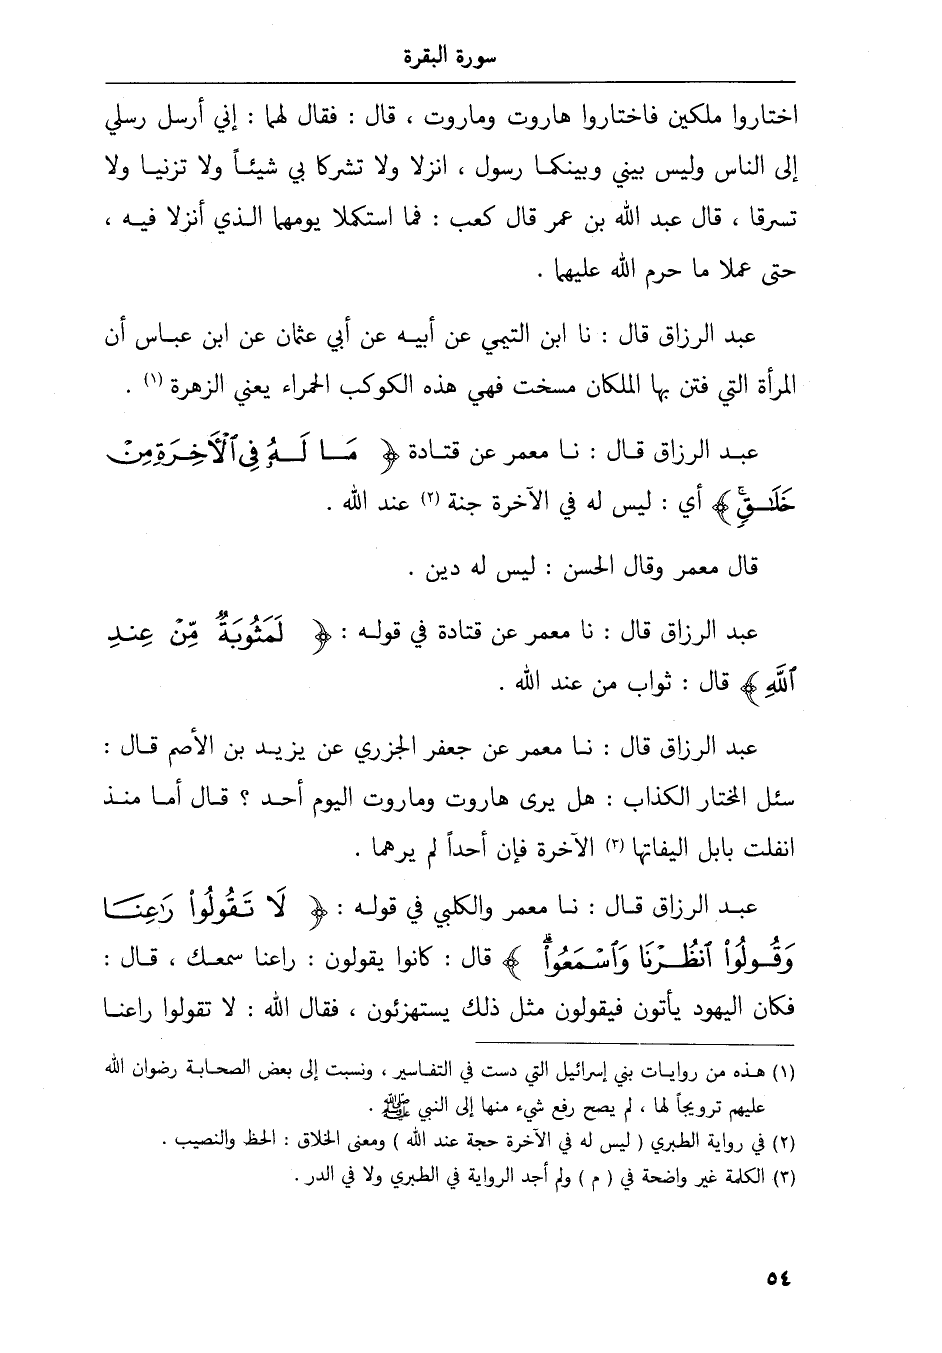 سورة البقرة
اختاروا ملكين فاختاروا هاروت وماروت ، قال : فقال لهما : إني أرسل رسلي
إلى الناس وليس بيني وبينكما رسول ، انزلا ولا تشركا بي شيئاً ولا تزنيا ولا
تسرقا ، قال عبد الله بن عمر قال كعب : فما استكملا يومهما الذي أنزلا فيه ،
حتى عملا ما حرم الله عليهما .
عبد الرزاق قال : نا ابن التيمي عن أبيه عن أبي عثمان عن ابن عباس أن
المرأة التي فتن بها الملكان مسخت فهي هذه الكوكب الحمراء يعني الزهرة (١) .
عبد الرزاق قال : نا معمر عن قتادة ﴿ مَا لَهُۥ فِي ٱلْأَخِرَةِ مِنْ
خَلَٰقٍۚ ﴾ أي : ليس له في الآخرة جنة (٢) عند الله .
قال معمر وقال الحسن : ليس له دين .
عبد الرزاق قال : نا معمر عن قتادة في قوله : ﴿ لَمَثُوبَةٌ مِّنْ عِندِ
ٱللَّهِ ﴾ قال : ثواب من عند الله .
عبد الرزاق قال : نا معمر عن جعفر الجزري عن يزيد بن الأصم قال :
سئل المختار الكذاب : هل يرى هاروت وماروت اليوم أحد ؟ قال أما منذ
انفلت بابل اليفاتها (٣) الآخرة فإن أحداً لم يرهما .
عبد الرزاق قال : نا معمر والكلبي في قوله : ﴿ لَا تَقُولُوا۟ رَٰعِنَا
وَقُولُوا۟ ٱنظُرْنَا وَٱسْمَعُوا۟ۗ ﴾ قال : كانوا يقولون : راعنا سمعك ، قال :
فكان اليهود يأتون فيقولون مثل ذلك يستهزئون ، فقال الله : لا تقولوا راعنا
(١) هذه من روايات بني إسرائيل التي دست في التفاسير ، ونسبت إلى بعض الصحابة رضوان الله
عليهم ترويجاً لها ، لم يصح رفع شيء منها إلى النبي ﷺ .
(٢) في رواية الطبري ( ليس له في الآخرة حجة عند الله ) ومعنى الخلاق : الحظ والنصيب .
(٣) الكلمة غير واضحة في ( م ) ولم أجد الرواية في الطبري ولا في الدر .
٥٤